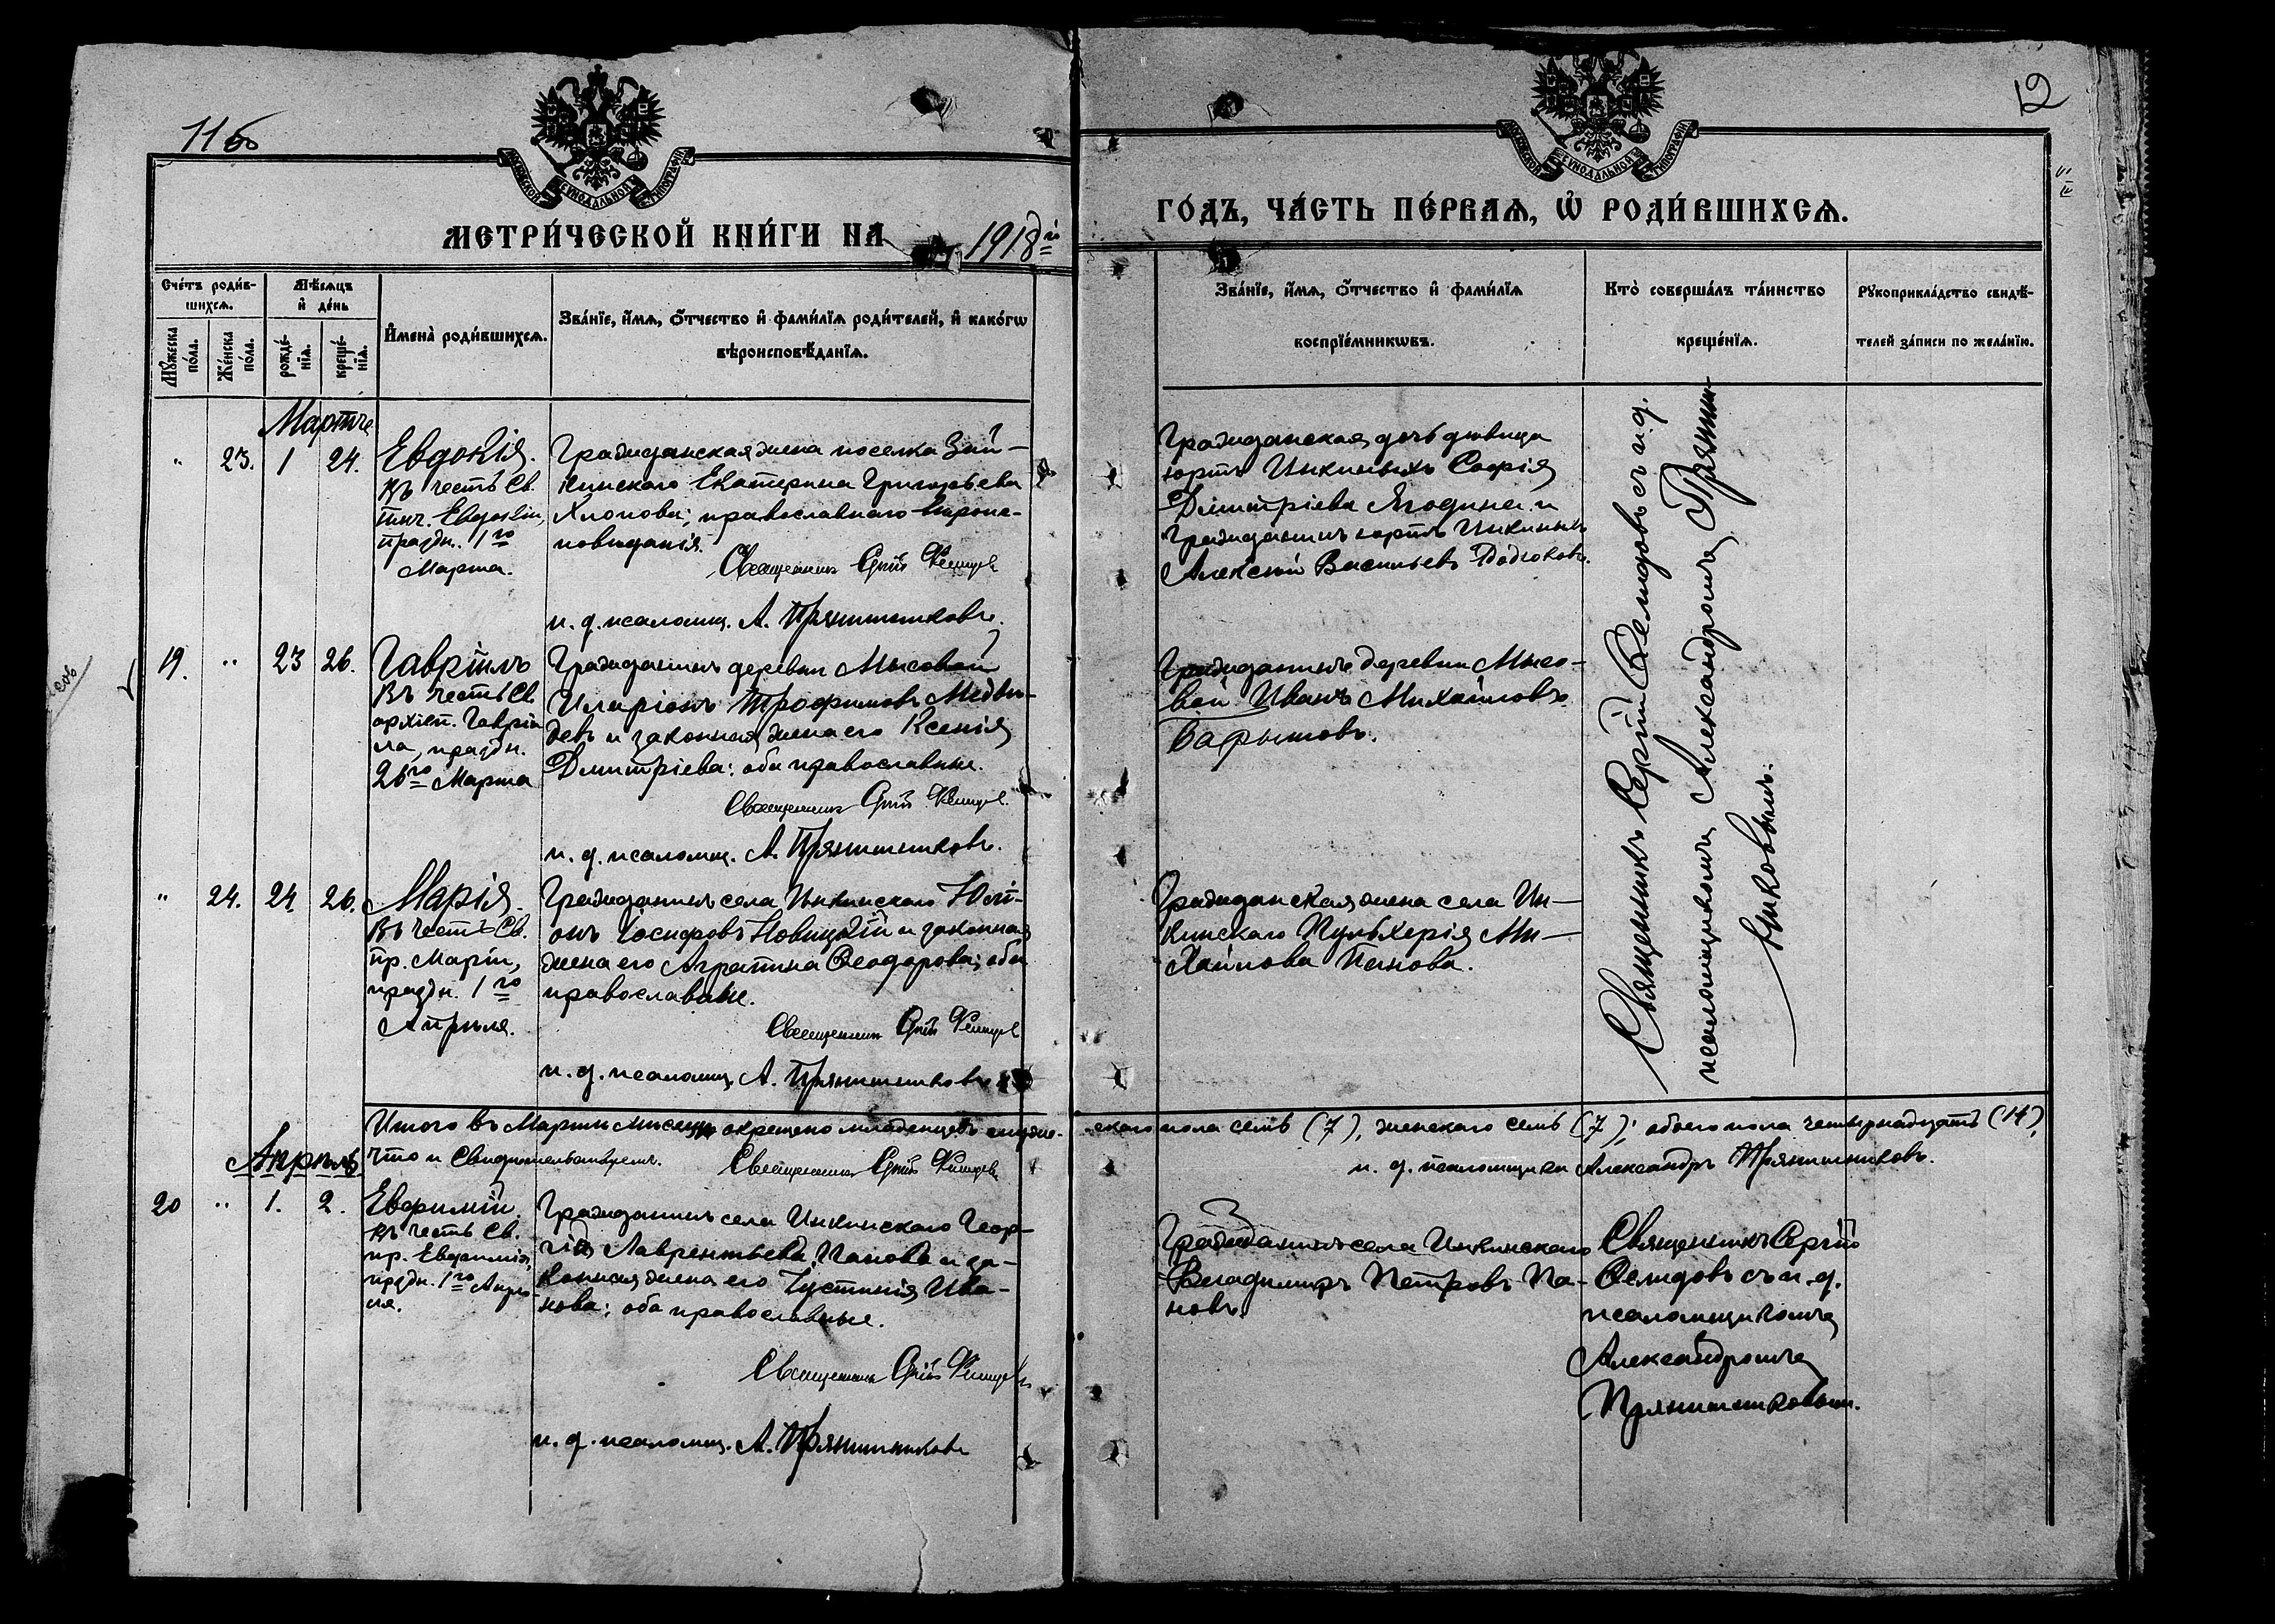 11об
12
МОСКОВСКОЙ СѴНОДАЛЬНОЙ ТИПОГРАФІИ
МЕТРИ́ЧЕСКОЙ КНИ́ГИ НА 1918й
МОСКОВСКОЙ СѴНОДАЛЬНОЙ ТИПОГРАФІИ
ГО́ДЪ, ЧА́СТЬ ПЕ́РВАѦ, Ѡ҆ РОДИ́ВШИХСѦ.
Сче́тъ роди́в-
шихсѧ.
Мꙋ́жеска
по́ла.
Же́нска
по́ла.
Мѣ́сѧцъ
и҆ де́нь
рожде́-
нїѧ.
креще́-
нїѧ.
И҆мена̀ роди́вшихсѧ.
Зва́нїе, и҆́мѧ, ѻ҆́тчество и҆ фами́лїѧ роди́телей, и҆ како́гѡ
вѣроисповѣ́данїѧ.
Зва́нїе, и҆́мѧ, ѻ҆́тчество и҆ фами́лїѧ
воспрїе́мникѡвъ.
Кто̀ соверша́лъ та́инство
креще́нїѧ.
Рꙋкоприкла́дство свидѣ́-
телей за́писи по жела́нїю.
Мартъ
" 23. 1 24.
Евдокія.
въ честь Св.
пмч. Евдокіи,
праздн. 1го
Марта.
Гражданская жена поселка Зай-
кинскаго Екатерина Григорьева
Хлопова; православнаго вѣроис-
повѣданія.
Священник Сергій
и. д. псаломщ. А. Прянишниковъ.
Гражданская дочь дѣвица
юртъ Инкиныхъ Софія
Димитріева Ягодина и
гражданинъ юртъ Инкиныхъ
Алексѣй Васильевъ
19. " 23 26.
Гавріилъ
въ честь Св.
архист. Гавріи-
ла, праздн.
26го Марта
Гражданинъ деревни Мысовой
Иларіонъ Трофимовъ Медвѣ-
девъ и законная жена его Ксенія
Димитріева: оба православные.
Священник Сергій
и. д. псаломщ. А. Прянишниковъ.
Гражданинъ деревни Мысо-
вой Иванъ Михайловъ
Барышовъ.
" 24. 24. 26.
Марія.
Въ честь Св.
пр. Маріи,
праздн. 1го
Апрѣля.
Гражданинъ села Инкинскаго
Іосифовъ Новицкій и законная
жена его Агрипина Ѳеодорова; оба
православные.
Священник Сергій
и. д. псаломщ. А. Прянишниковъ
Гражданская жена села Ин-
кинскаго Пульхерія Ми-
хайлова Панова.
Священникъ Сергій съ и. д.
псаломщикомъ Александромъ Прянишн-
никовымъ.
Итого въ Мартѣ мѣсяцѣ окрещено младенцевъ мужe-
скаго пола семь (7), женскаго семь (7); обоего пола четырнадцать (14),
что и свидѣтельствуемъ. Священник Сергій
и. д. псаломщика Александръ Прянишниковъ.
Апрѣль
20 " 1. 2.
Евфимій.
въ честь Св.
пр. Евфимія,
праздн. 1го Апрѣ-
ля.
Гражданинъ села Инкинскаго Геор-
гій Лаврентьевъ Пановъ и за-
конная жена его Іустинія Ива-
нова: оба православные.
Священник Сергій
и. д. псаломщ. А. Прянишниковъ
Гражданинъ села Инкинскаго
Владимиръ Петровъ Па-
новъ.
Священникъ Сергій
съ и. д.
псаломщикомъ
Александромъ
Прянишниковым.